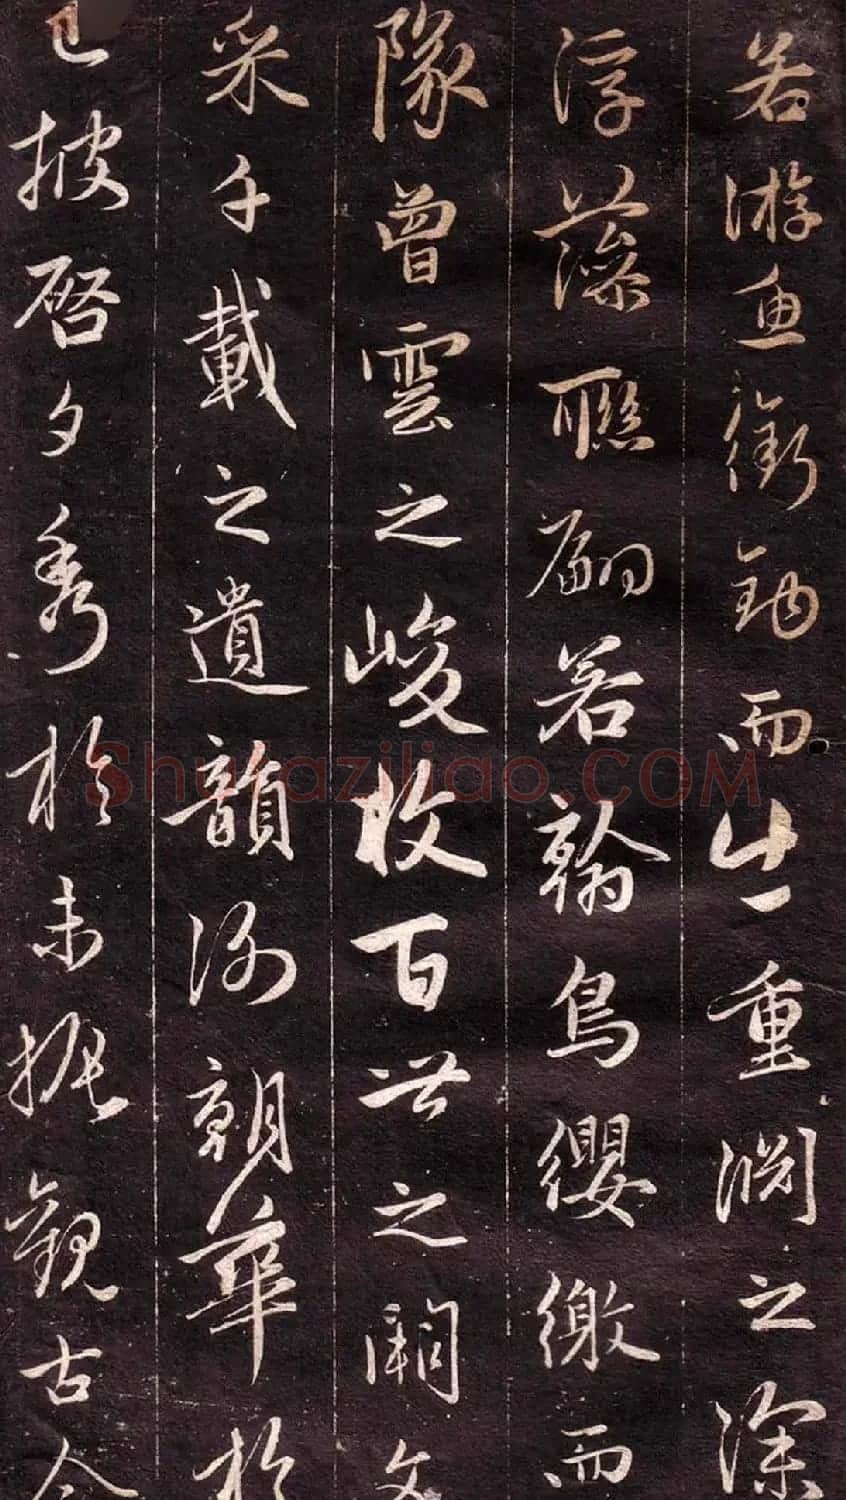 若游魚銜鉤而出重淵之深
浮藻聯翩若翰鳥纓繳而
隊曾雲之峻收百世之闕文
采千載之遺韻謝朝華於
已披启夕秀於未振觀古今
Shufaziliao.COM